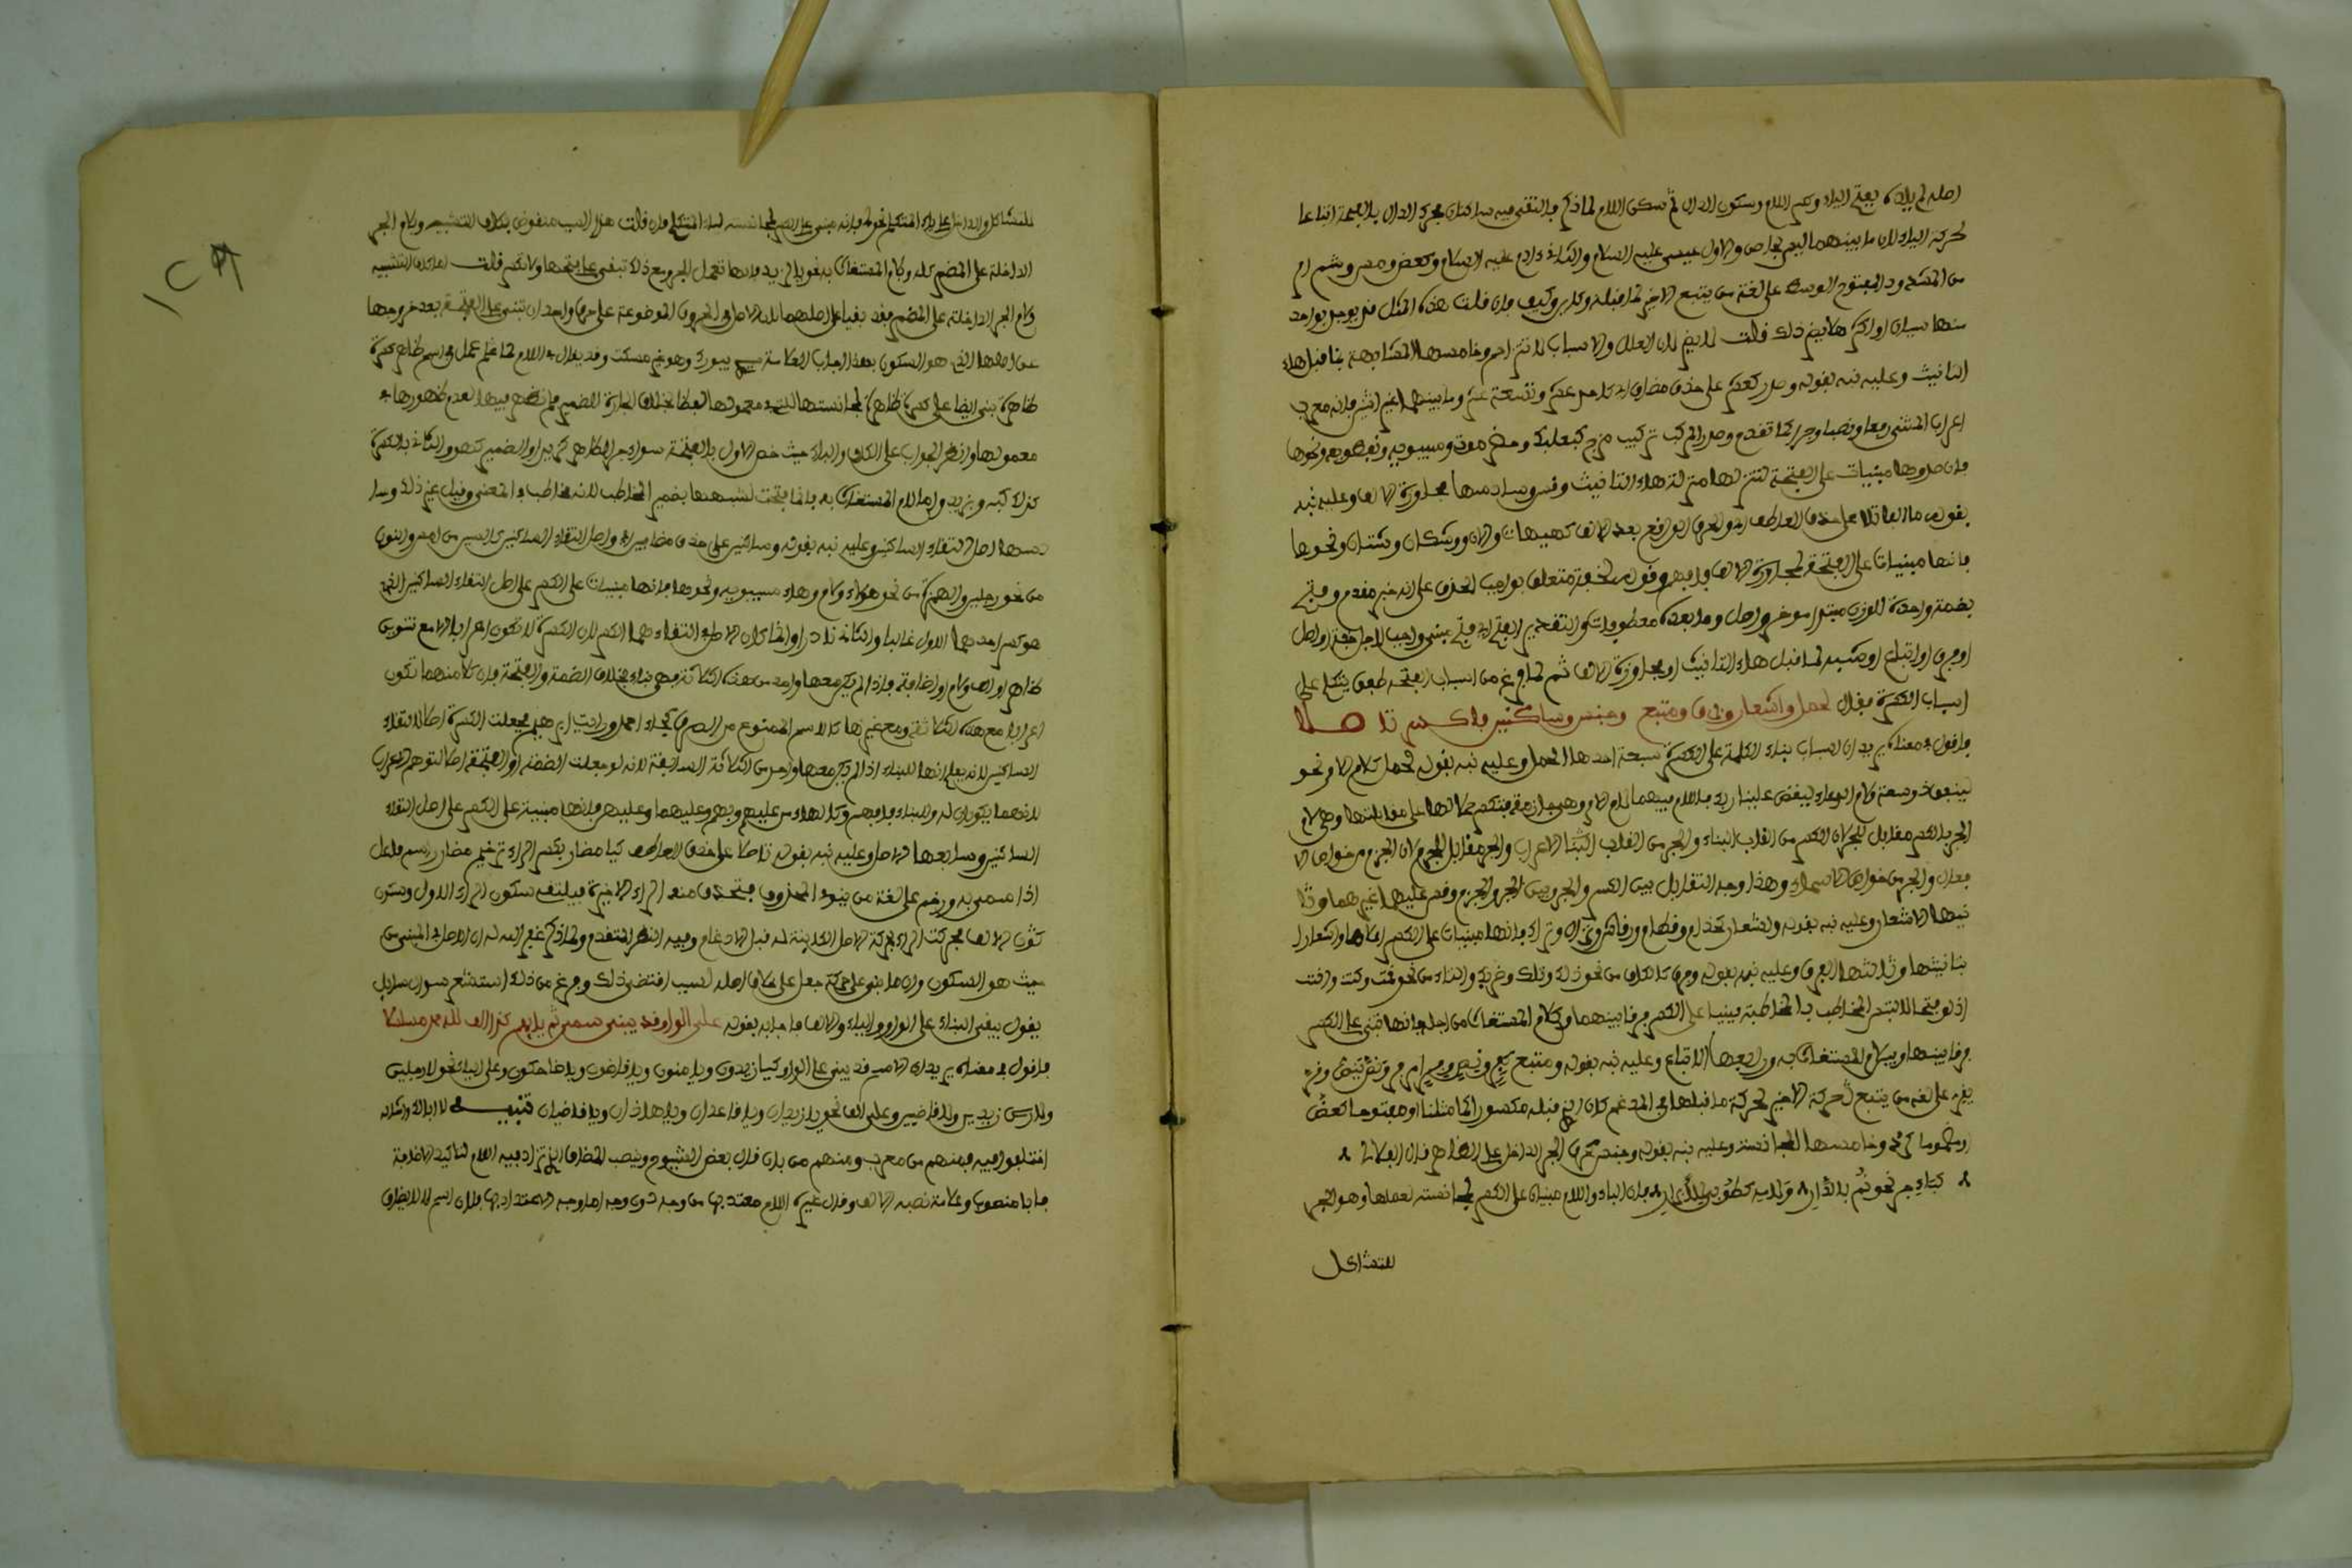 اصله لم يلده بفتح الياء وكسر اللام وسكون الدال ثم سكن اللام لما ذكر فالتقى فيه ساكنان فحرك الدال بالفتحة اتباعا
لحركة الياء لان ما بينهما ليس بحاجز والاول عيسى عليه السلام والثاني ءادم عليه السلام وكعض ومس وشم ام
من المشدود المفتوح الوسط على لغة من يتبع الاخير لما قبله وكاين وكيف فان قلت هذه المثل قد يوجد بواحد
منها سببان او اكثر هلا يضر ذلك قلت لا يضر لان العلل والاسباب لا تتزاحم وخامسها المشابهة بما قبل هاء
التانيث وعليه نبه بقوله وصدر كعشر على حذف مضاف اي كاحد عشر وتسعة عشر وما بينهما غير اثني فانه معرب
اعراب المثنى رفعا ونصبا وجرا كما تقدم وصدر المركب تركيب مزج كبعلبك وحضر موت وسيبويه ونفطويه ونحوها
فان صدورها مبنيات على الفتحة لتنزلها منزلة هاء التانيث وسادسها مجاورة الالف وعليه نبه
بقوله ما الفا تلا على حذف العاطف اي والحرف الواقع بعد الالف كهيهات والان ووشكان وشتان ونحوها
فانها مبنيات على الفتحة لمجاورة الالف فافهم وقوله لخفة متعلق بواجب الحذف على انه خبر مقدم وفتح
بضمة واحدة للوزن مبتدا موخر واصل وما بعده معطوفات والتقدير الفتح اي فتح مبني واجب لاجل خفة او اصل
او حرف او اتباع او مشبه لما قبل هاء التانيث او مجاورة الالف ثم لما فرغ من اسباب الفتحة طفق يتكلم على
اسباب الكسرة فقال لحمل واشعار وفرق ومتبع وجنس وساكنين فاكسر تا صلا
فاقول معناه يريد ان اسباب بناء الكلمة على الكسرة سبعة احدها الحمل وعليه نبه بقوله لحمل كلام الامر نحو
لينفق ذو سعة ولام الدعاء ليقض علينا ربك فاللام فيهما لام الامر وهي جازمة فتكسر حملا لها على مقابلتها وهي لام
الجر فالكسر مقابل للجر لان الكسر من القاب البناء والجر من القاب الاعراب والجر مقابل الجزم لان الجزم من خواص الا
فعال والجر من خواص الاسماء وهذا وجه التقابل بين الكسر والجر وبين الجر والجزم وقس عليهما غيرهما وثا
نيها الاشعار وعليه نبه بقوله واشعار كحذام وقطام ورقاش ونزال وتراك فانها مبنيات على الكسر اشعارا
بتانيثها وثالثها الفرق وعليه نبه بقوله وفرق كالكاف من نحو ذلك وتلك وضربك والتاء من نحو قمت وكنت وانت
اذ لو فتحا لالتبس المخاطب بالمخاطبة فبنيا على الكسر فرقا بينهما وكلام المستغاث من اجله فانها تبنى على الكسر
فرقا بينها وبين لام المستغاث به ورابعها الاتباع وعليه نبه بقوله ومتبع
على لغة من يتبع حركة الاخير لحركة ما قبلها في المدغم كان قبله مكسورا كما مثلنا او مفتوحا كعض
او مضموما كرد وخامسها المجانسة وعليه نبه بقوله وجنس كحرف الجر الداخل على الظاهر قال
كباء جر نحو ثم بالدار ولاميه فان الباء واللام مبنيان على الكسر لمجانسته لعملها وهو الجر
للتشاكل
١٢٩
للتشاكل والداخل على ياء المتكلم نحو لي فانه مبني على الكسر لمجانسته لياء المتكلم فان قلت هذا السبب منقوض بكاف التشبيه ولام الجر
الداخلة على المضمر كله ولام المستغاث به نحو يا لزيد فانها تعمل الجر ومع ذلك تبنى على فتحها ولا تكسر قلت اما كاف التشبيه
ولام الجر الداخلة على المضمر فقد بقيا على اصلهما لان الاصل في الحروف الموضوعة على حرف واحد ان تبنى على الفتحة بعد خروجها
عن اصلها الذي هو السكون
ظاهرة بني ايضا على كسرة ظاهرة لمجانستها معمولها لفظا بخلاف الجارة للضمير فلم تظهر فيها لعدم ظهورها في
معمولها وانظر الجواب على الكاف والباء حيث خص الاول بالفتحة سواء جر الظاهر كزيد او الضمير كهو والثاني بالكسرة
كذلك كبه وبزيد واما لام المستغاث به فانما فتحت لشبهها بضمير المخاطب لانه مخاطب في المعنى وقيل غير ذلك وسا
دسها اصل التقاء الساكنين وعليه نبه بقوله وساكنين على حذف مضاف اي واصل التقاء الساكنين كالسين من امس والنون
من نحو رجلين والهمزة من نحو هؤلاء ولام وهاء سيبويه ونحوها فانها مبنيات على الكسر على اصل التقاء الساكنين الذي
هو كسر احدهما الاول غالبا والثاني نادرا وانما كان الاصل في التقاءهما الكسر لان الكسرة لا تكون اعرابا الا مع تنوين
ظاهر او الف ولام او اضافة فاذا لم يكن معها واحد من هذه الثلاثة فهي بناء بخلاف الضمة والفتحة فان كلا منهما تكون
اعرابا مع هذه الثلاثة ومع غيرها كالاسم الممنوع من الصرف كجاء احمد ورايت ابرهيم فجعلت الكسرة اصلا لالتقاء
الساكنين لانه يعلم انها للبناء اذا لم يكن معها واحد من الثلاثة السابقة لانه لو جعلت الضمة او الفتحة اصلا لتوهم الاعراب
لانهما يكونان له وللبناء فافهم وكالهاء من عليهم وبهم وعليهما وعليهن فانها مبنية على الكسر على اصل التقاء
الساكنين وسابعها الاصل وعليه نبه بقوله تا صلا على حذف العاطف كيا مضار بكسر الراء ترخيم مضار اسم فاعل
اذا سمي به ورخم على لغة من ينوي المحذوف فتحذف منه الراء الاخيرة فيلتقي سكون الراء الاول وسكون
الالف فحركت الراء بحركة الاصل الكائنة له قبل الادغام وفيه النظر المتقدم ولما ذكر غير السالم ان الاصل في المبني من
حيث هو السكون وان ما بني على حركة جعل على خلاف اصله لسبب اقتضى ذلك وفرغ من ذلك استشعر سوال سايل
يقول بقي البناء على الواو والياء والالف فاجابه بقوله على الواو قد يبنى سمي ثم يايهم كذا الف للامر مسلكا
فاقول معناه يريد ان الاسم قد يبنى على الواو كيا زيدون ويا منون ويا قاضون ويا ضاحكون وعلى الياء نحو لا رجلين
ولا زيدين ولا قاضيين وعلى الف نحو يا زيدان ويا قاعدان ويا هاذان ويا قاضيان تنبيه لا ابا لك واشكاله
اختلفوا فيه فمنهم من معرب ومنهم من بان قال بعض الشيوخ ونصب المضاف ان تزاد فيه اللام لتاكيد الاضافة
فابا منصوب وعلامة نصبه الالف وقال غيره اللام معتد بها من وجه دون وجه اما وجه الاعتداد بها فلان اسم لا لا يضاف